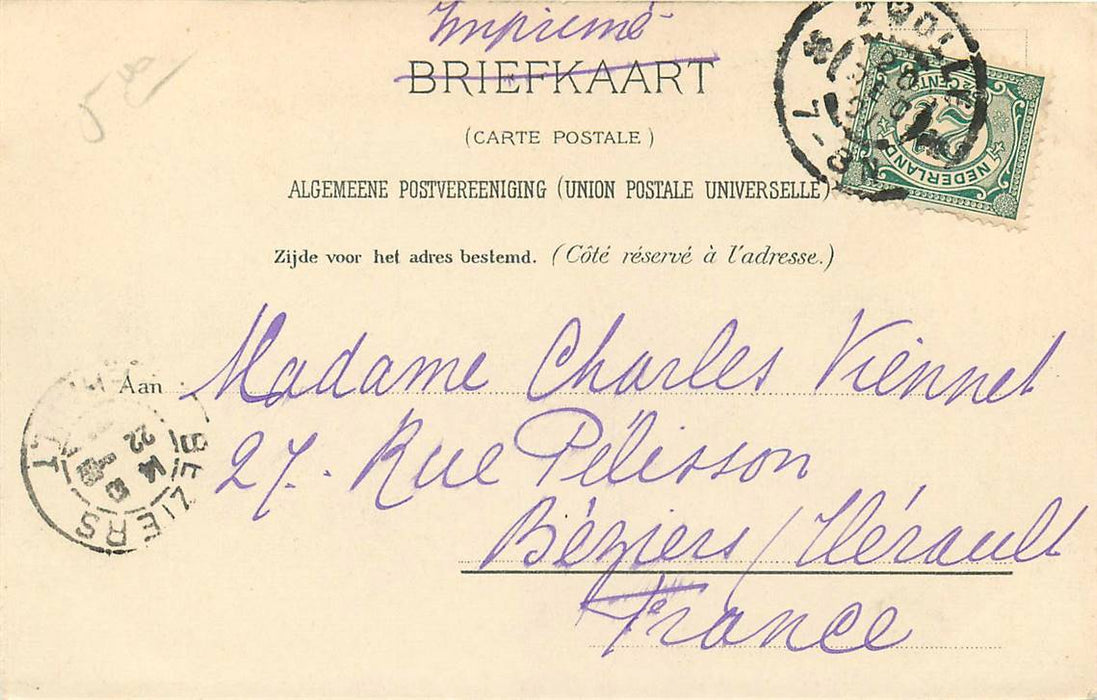 Imprimé
BRIEFKAART
(CARTE POSTALE)
ALGEMEENE POSTVEREENIGING (UNION POSTALE UNIVERSELLE)
Zijde voor het adres bestemd. (Côté réservé à l'adresse.)
Aan Madame Charles Viennet
27. Rue Pélisson
Béziers / Hérault
France
ZWOLLE
NEDERLAND
2½
CENT
BEZIERS
22
14